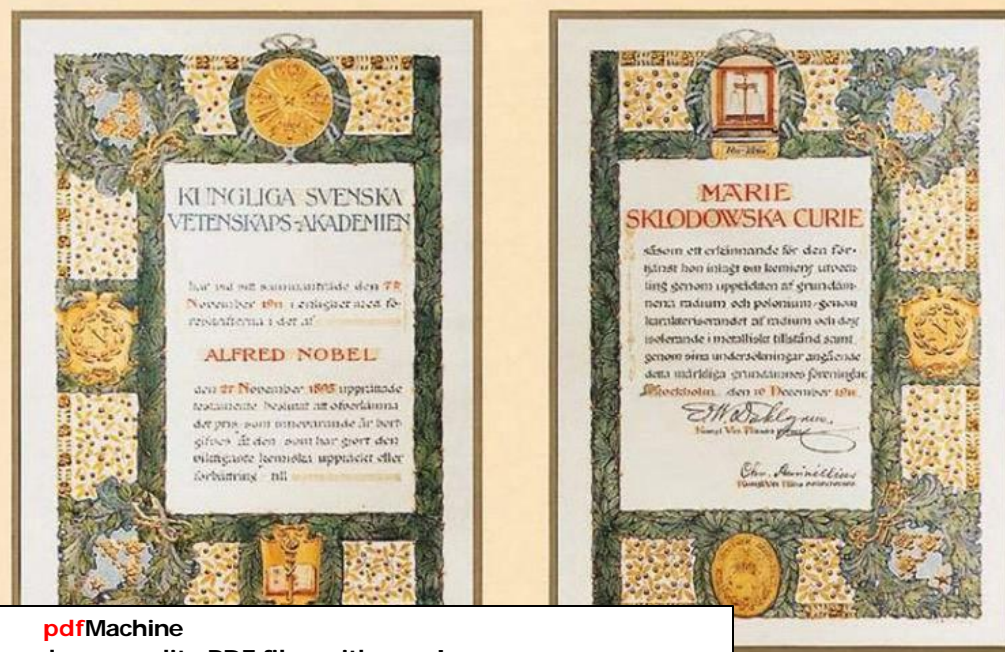 KUNGLIGA SVENSKA
VETENSKAPS-AKADEMIEN
har vid sitt sammanträde den
November 1911 i enlighet med fö-
reskrifterna i det af
ALFRED NOBEL
den 27 November 1895 upprättade
testamente beslutat att öfverlämna
det pris som innevarande år bort-
gifves åt den som har gjort den
viktigaste kemiska upptäckt eller
förbättring till
MARIE
SKLODOWSKA CURIE
såsom ett erkännande för den för-
tjänst hon inlagt om kemiens utveck-
ling genom upptäckten af grundäm-
nena radium och polonium genom
karakteriserandet af radium och dess
isolerande i metalliskt tillstånd samt
genom sina undersökningar angående
detta märkliga grundämnes föreningar
Stockholm den 10 December 1911
pdfMachine